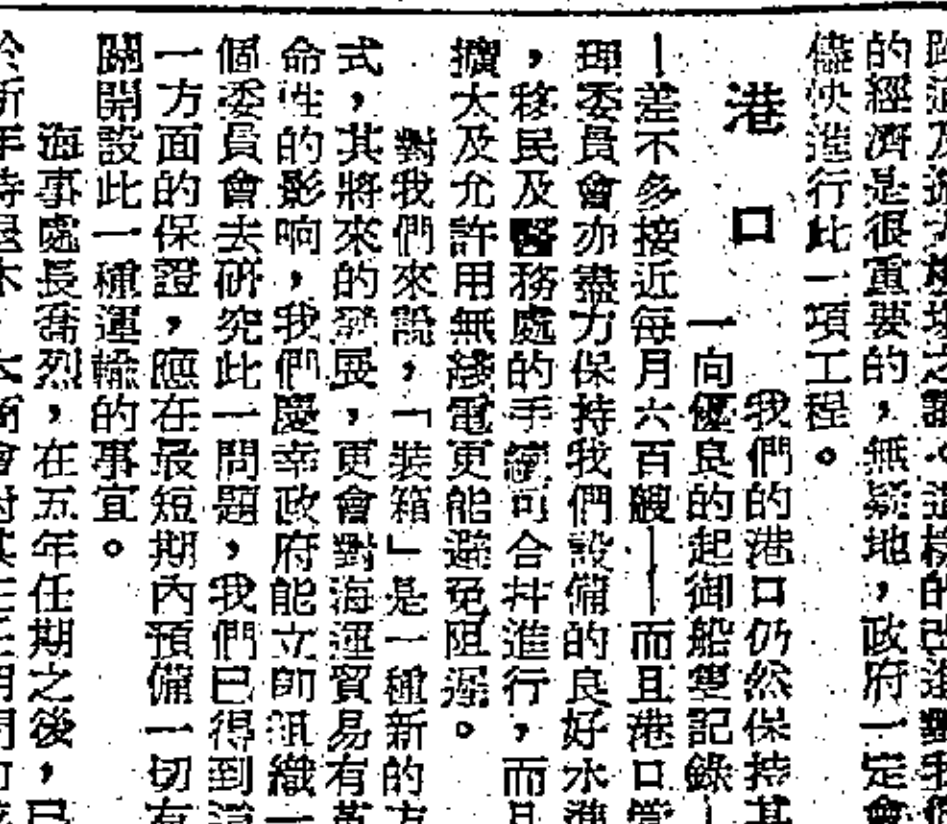 的經濟是很重要的，無疑地，政府一定會
儘快進行此一項工程。
港口
我們的港口仍然保持其
一向優良的起御船隻記錄—
—差不多接近每月六百艘——而且港口管
理委員會亦盡力保持我們設備的良好水準
，移民及醫務處的手續可合并進行，而且
擴大及允許用無綫電更能避免阻遲。
對我們來說，「裝箱」是一種新的方
式，其將來的發展，更會對海運貿易有革
命性的影响，我們慶幸政府能立即組織一
個委員會去研究此一問題，我們已得到這
一方面的保證，應在最短期內預備一切有
關開設此一種運輸的事宜。
海事處長喬烈，在五年任期之後，已